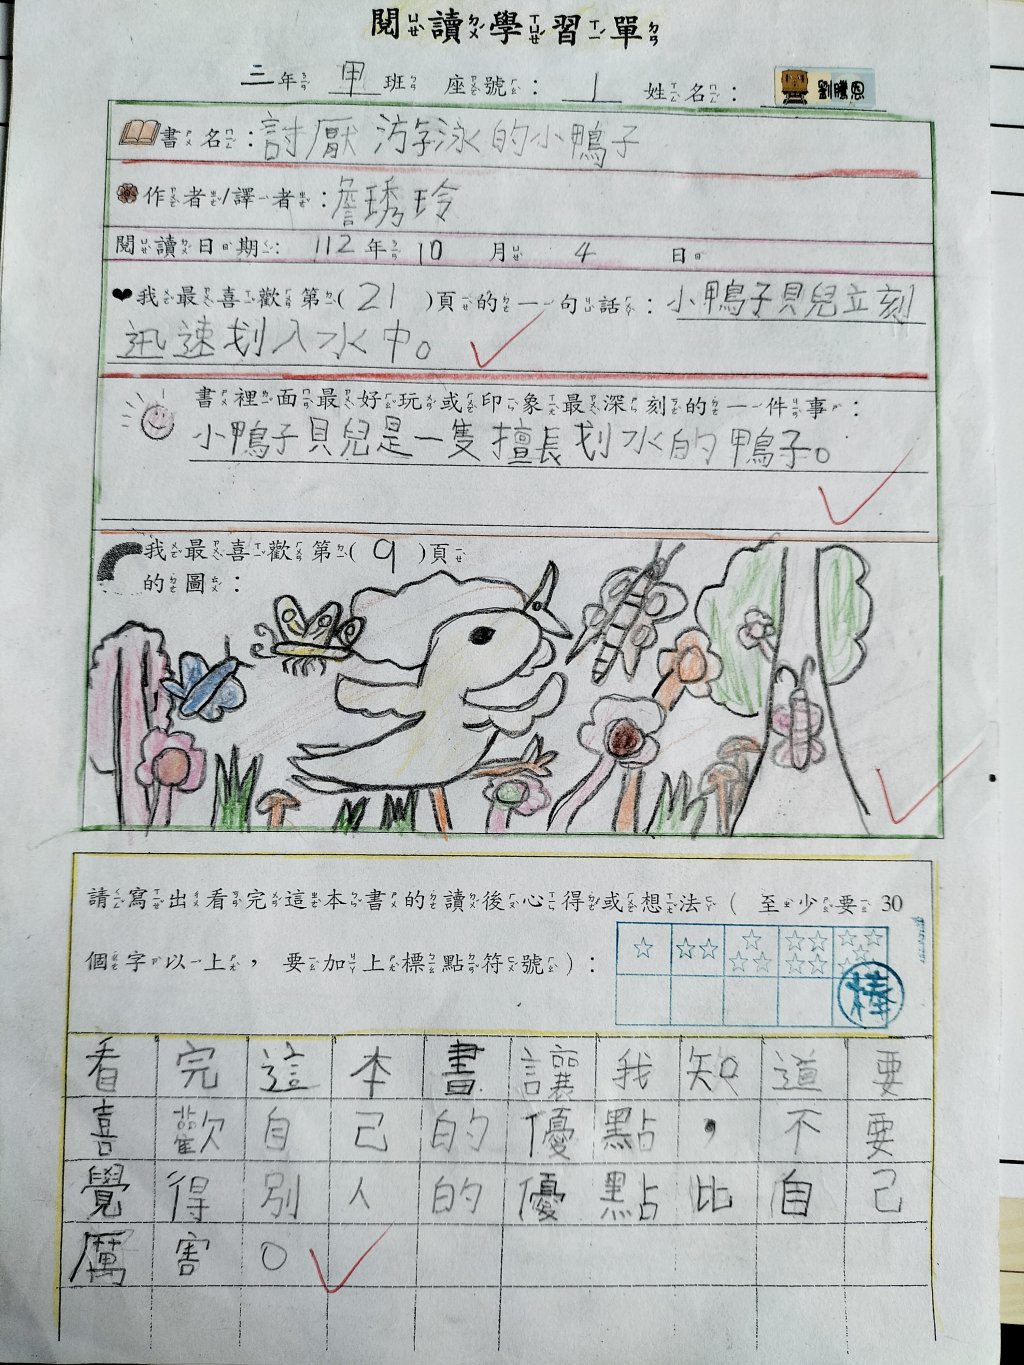 閱讀學習單
三年甲班 座號：1 姓名：劉騰恩
書名：討厭游泳的小鴨子
作者/譯者：詹琇玲
閱讀日期：112年10月4日
❤我最喜歡第(21)頁的一句話：小鴨子貝兒立刻
迅速划入水中。
書裡面最好玩或印象最深刻的一件事：
小鴨子貝兒是一隻擅長划水的鴨子。
我最喜歡第(9)頁
的圖：
請寫出看完這本書的讀後心得或想法(至少要30
個字以上，要加上標點符號)：
棒
看完這本書讓我知道要
喜歡自己的優點，不要
覺得別人的優點比自己
厲害。